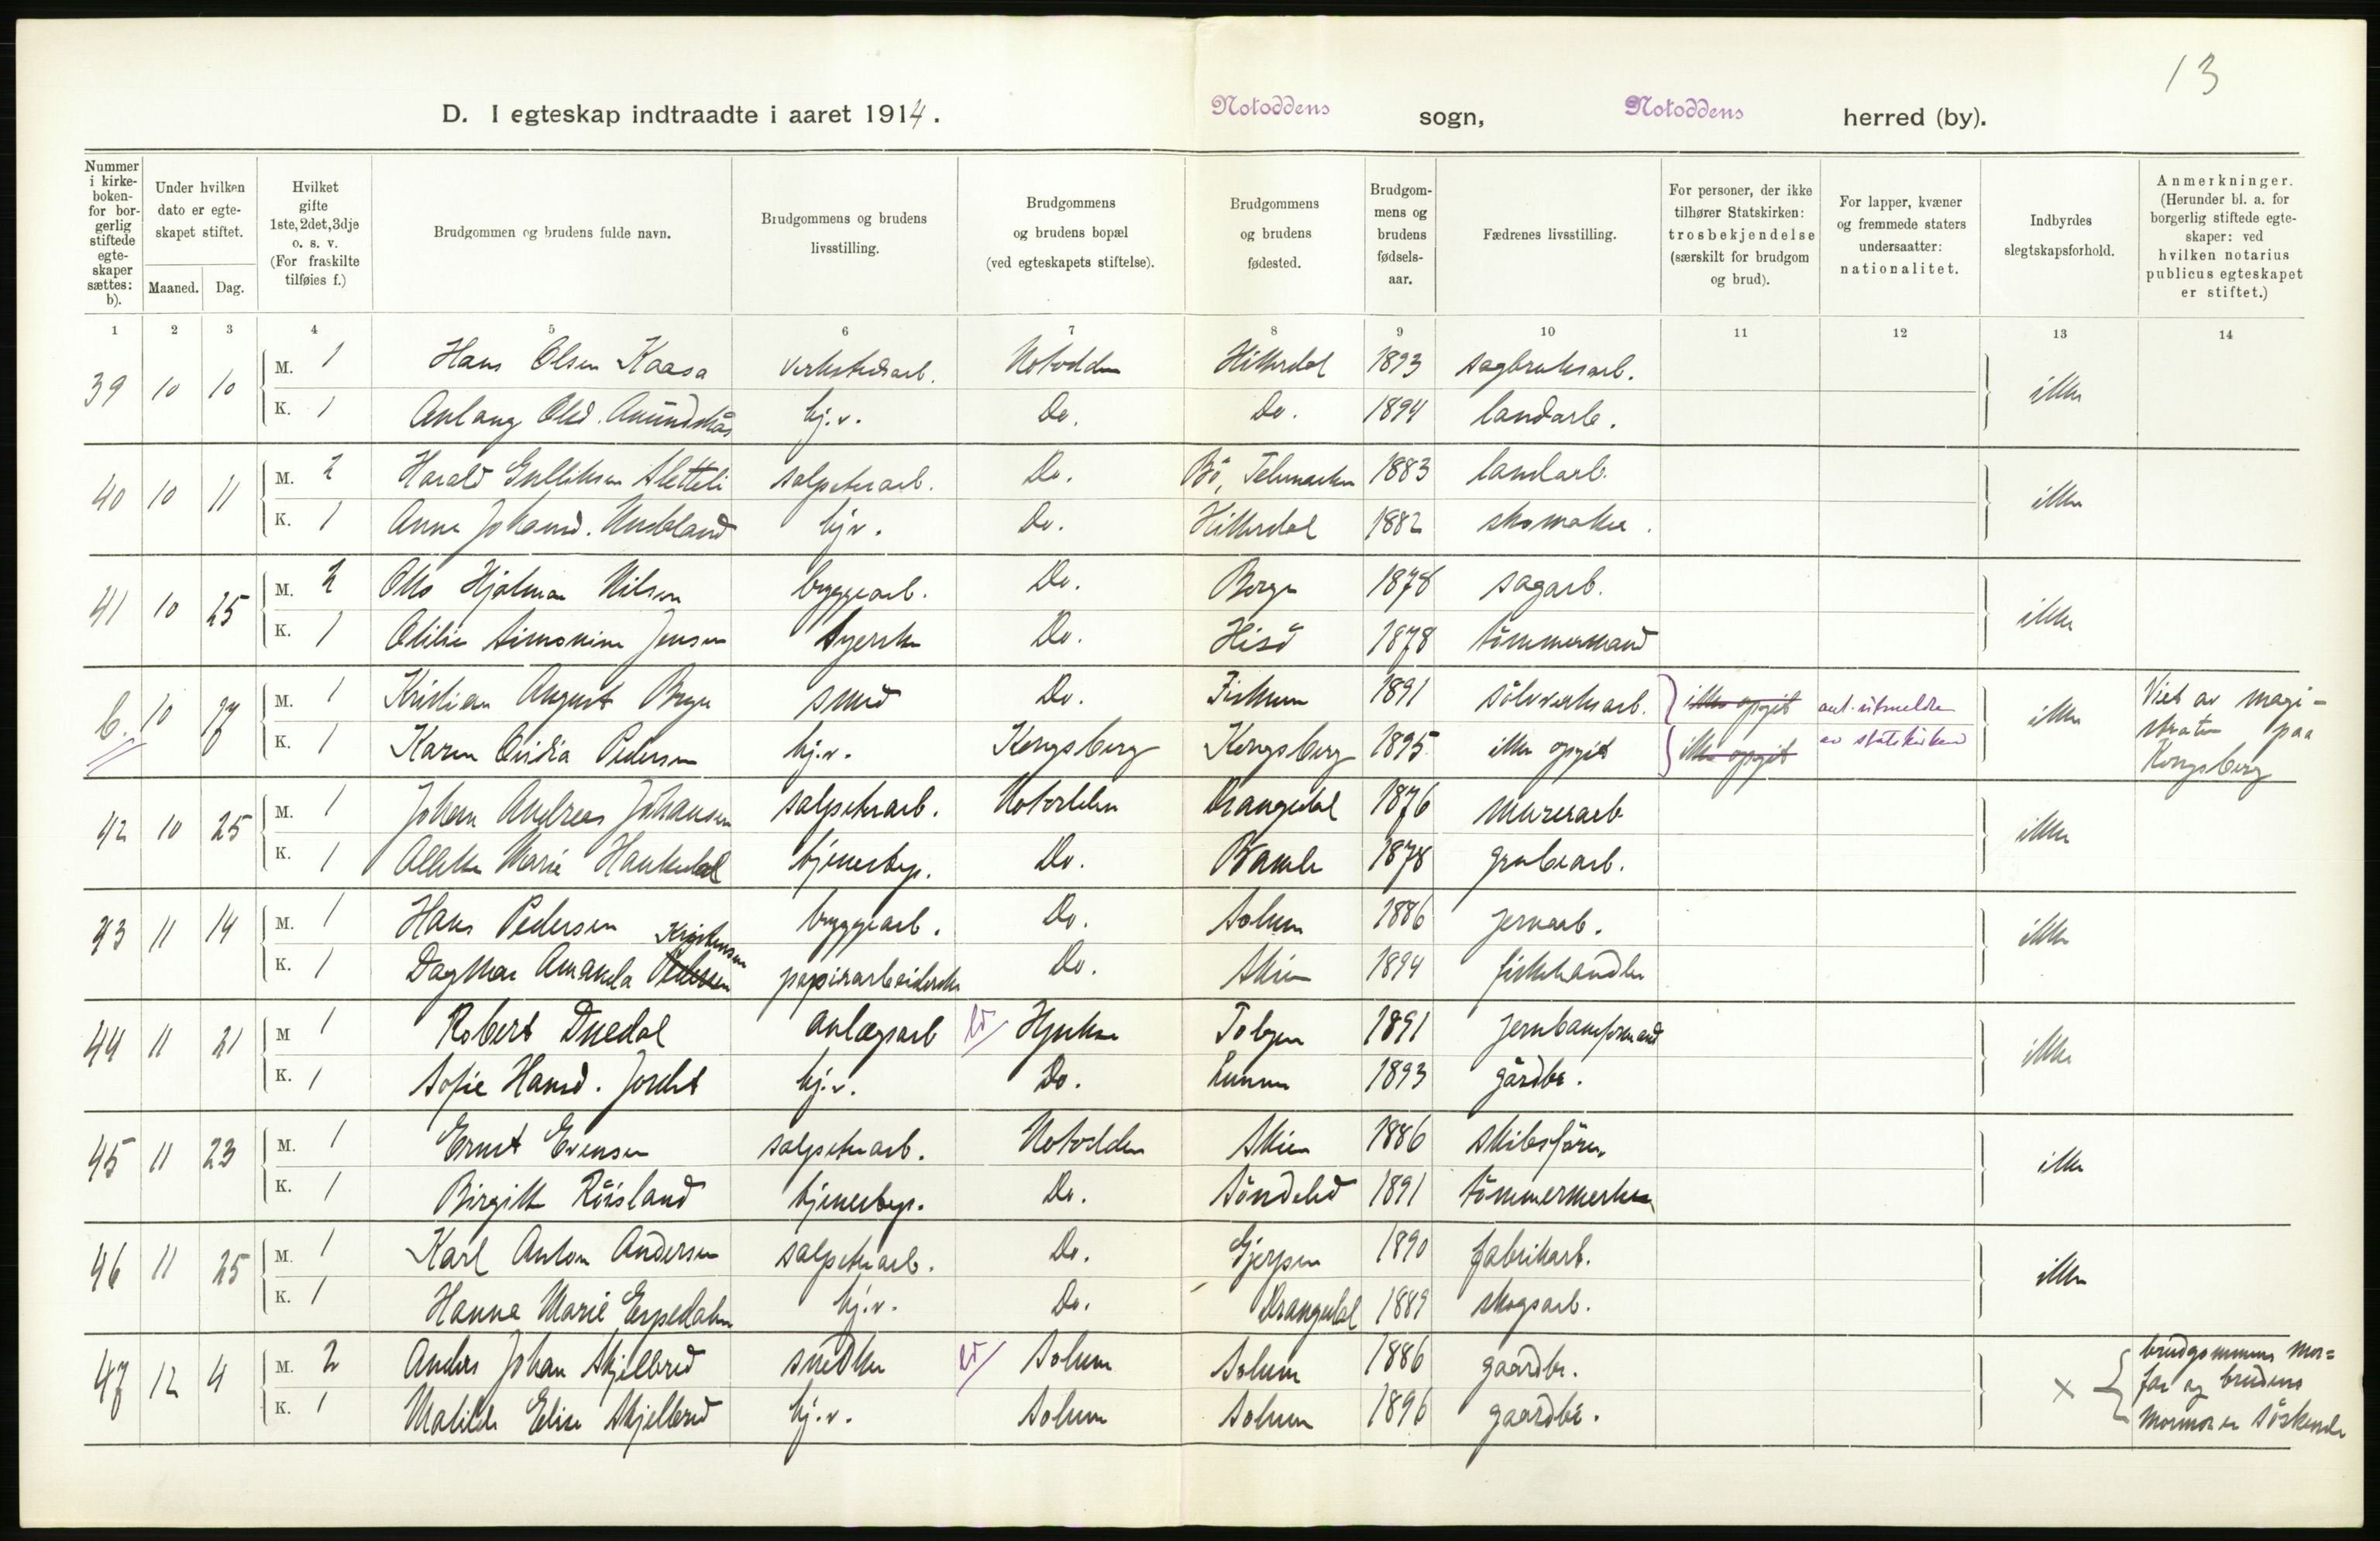 13
D. I egteskap indtraadte i aaret 1914. Notoddens sogn, Notoddens herred (by).
Nummer i kirke-boken- for bor-gerlig stiftede egte-skaper sættes: b).
Under hvilken dato er egte-skapet stiftet.
Maaned. Dag.
Hvilket gifte 1ste, 2det, 3dje o. s. v. (For fraskilte tilføies f.)
Brudgommen og brudens fulde navn.
Brudgommens og brudens livsstilling.
Brudgommens og brudens bopæl (ved egteskapets stiftelse).
Brudgommens og brudens fødested.
Brudgom-mens og brudens fødsels-aar.
Fædrenes livsstilling.
For personer, der ikke tilhører Statskirken: trosbekjendelse (særskilt for brudgom og brud).
For lapper, kvæner og fremmede staters undersaatter: nationalitet.
Indbyrdes slegtskapsforhold.
Anmerkninger. (Herunder bl. a. for borgerlig stiftede egte-skaper: ved hvilken notarius publicus egteskapet er stiftet.)
1 2 3 4 5 6 7 8 9 10 11 12 13 14
39 10 10 M. 1 Hans Olsen Kaasa verkstedsarb. Notodden Hitterdal 1893 sagbruksarb. ikke
K. 1 Aslaug Olsd. hj.v. Do. Do. 1894 landarb.
40 10 11 M. 2 Harald Gulliksen Sletteli salpeterarb. Do. Bö, Telemarken 1883 landarb. ikke
K. 1 Anne Johansd. hj.v. Do. Hitterdal 1882 skomaker.
41 10 25 M. 2 Otto Hjalmar Nilsen byggearb. Do. Borge 1878 sagarb. ikke
K. 1 Otilie Simonine Jensen Syerske Do. Hisö 1878 tömmermand
b. 10 17 M. 1 Kristian August Berge smed Do. Fiskum 1891 sölvverksarb. ikke opgit ant. utmeldte ikke Viet av magi-
K. 1 Karen Ovidia Pedersen hj.v. Kongsberg Kongsberg 1895 ikke opgit ikke opgit av statskirken straten paa
Kongsberg
42 10 25 M. 1 Johan Andreas Johansen salpeterarb. Notodden Drangedal 1876 murerarb. ikke
K. 1 Marie tjenestep. Do. Bamle 1878 grubearb.
43 11 14 M. 1 Hans Pedersen byggearb. Do. Solum 1886 jernarb. ikke
Kristensen
K. 1 Dagmar Amanda Pedersen papirarbeiderske Do. Skien 1894 fiskehandler
44 11 21 M 1 Robert Duedal anlægsarb Hjuksa Tolgen 1891 jernbaneformand ikke
K. 1 Sofie Hansd. hj.v. Do. Lunner 1893 gårdbr.
45 11 23 M. 1 Ernst Evensen salpeterarb. Notodden Skien 1886 skibsförer ikke
K. 1 Birgitte Röisland tjenestep. Do. Söndeled 1891 tömmermerker
46 11 25 M. 1 Karl Anton Andersen salpeterarb. Do. Gjerpen 1890 fabrikarb. ikke
K. 1 Hanna Marie Espedalen hj.v. Do. Drangedal 1889 skogsarb.
47 12 4 M. 2 Anders Johan Skjelbred snedker Solum Solum 1886 gaardbr. × brudgommens mor=
far og brudens
K. 1 Matilde Elise Skjelbred hj.v. Solum Solum 1896 gaardbr.
mormor er söskende